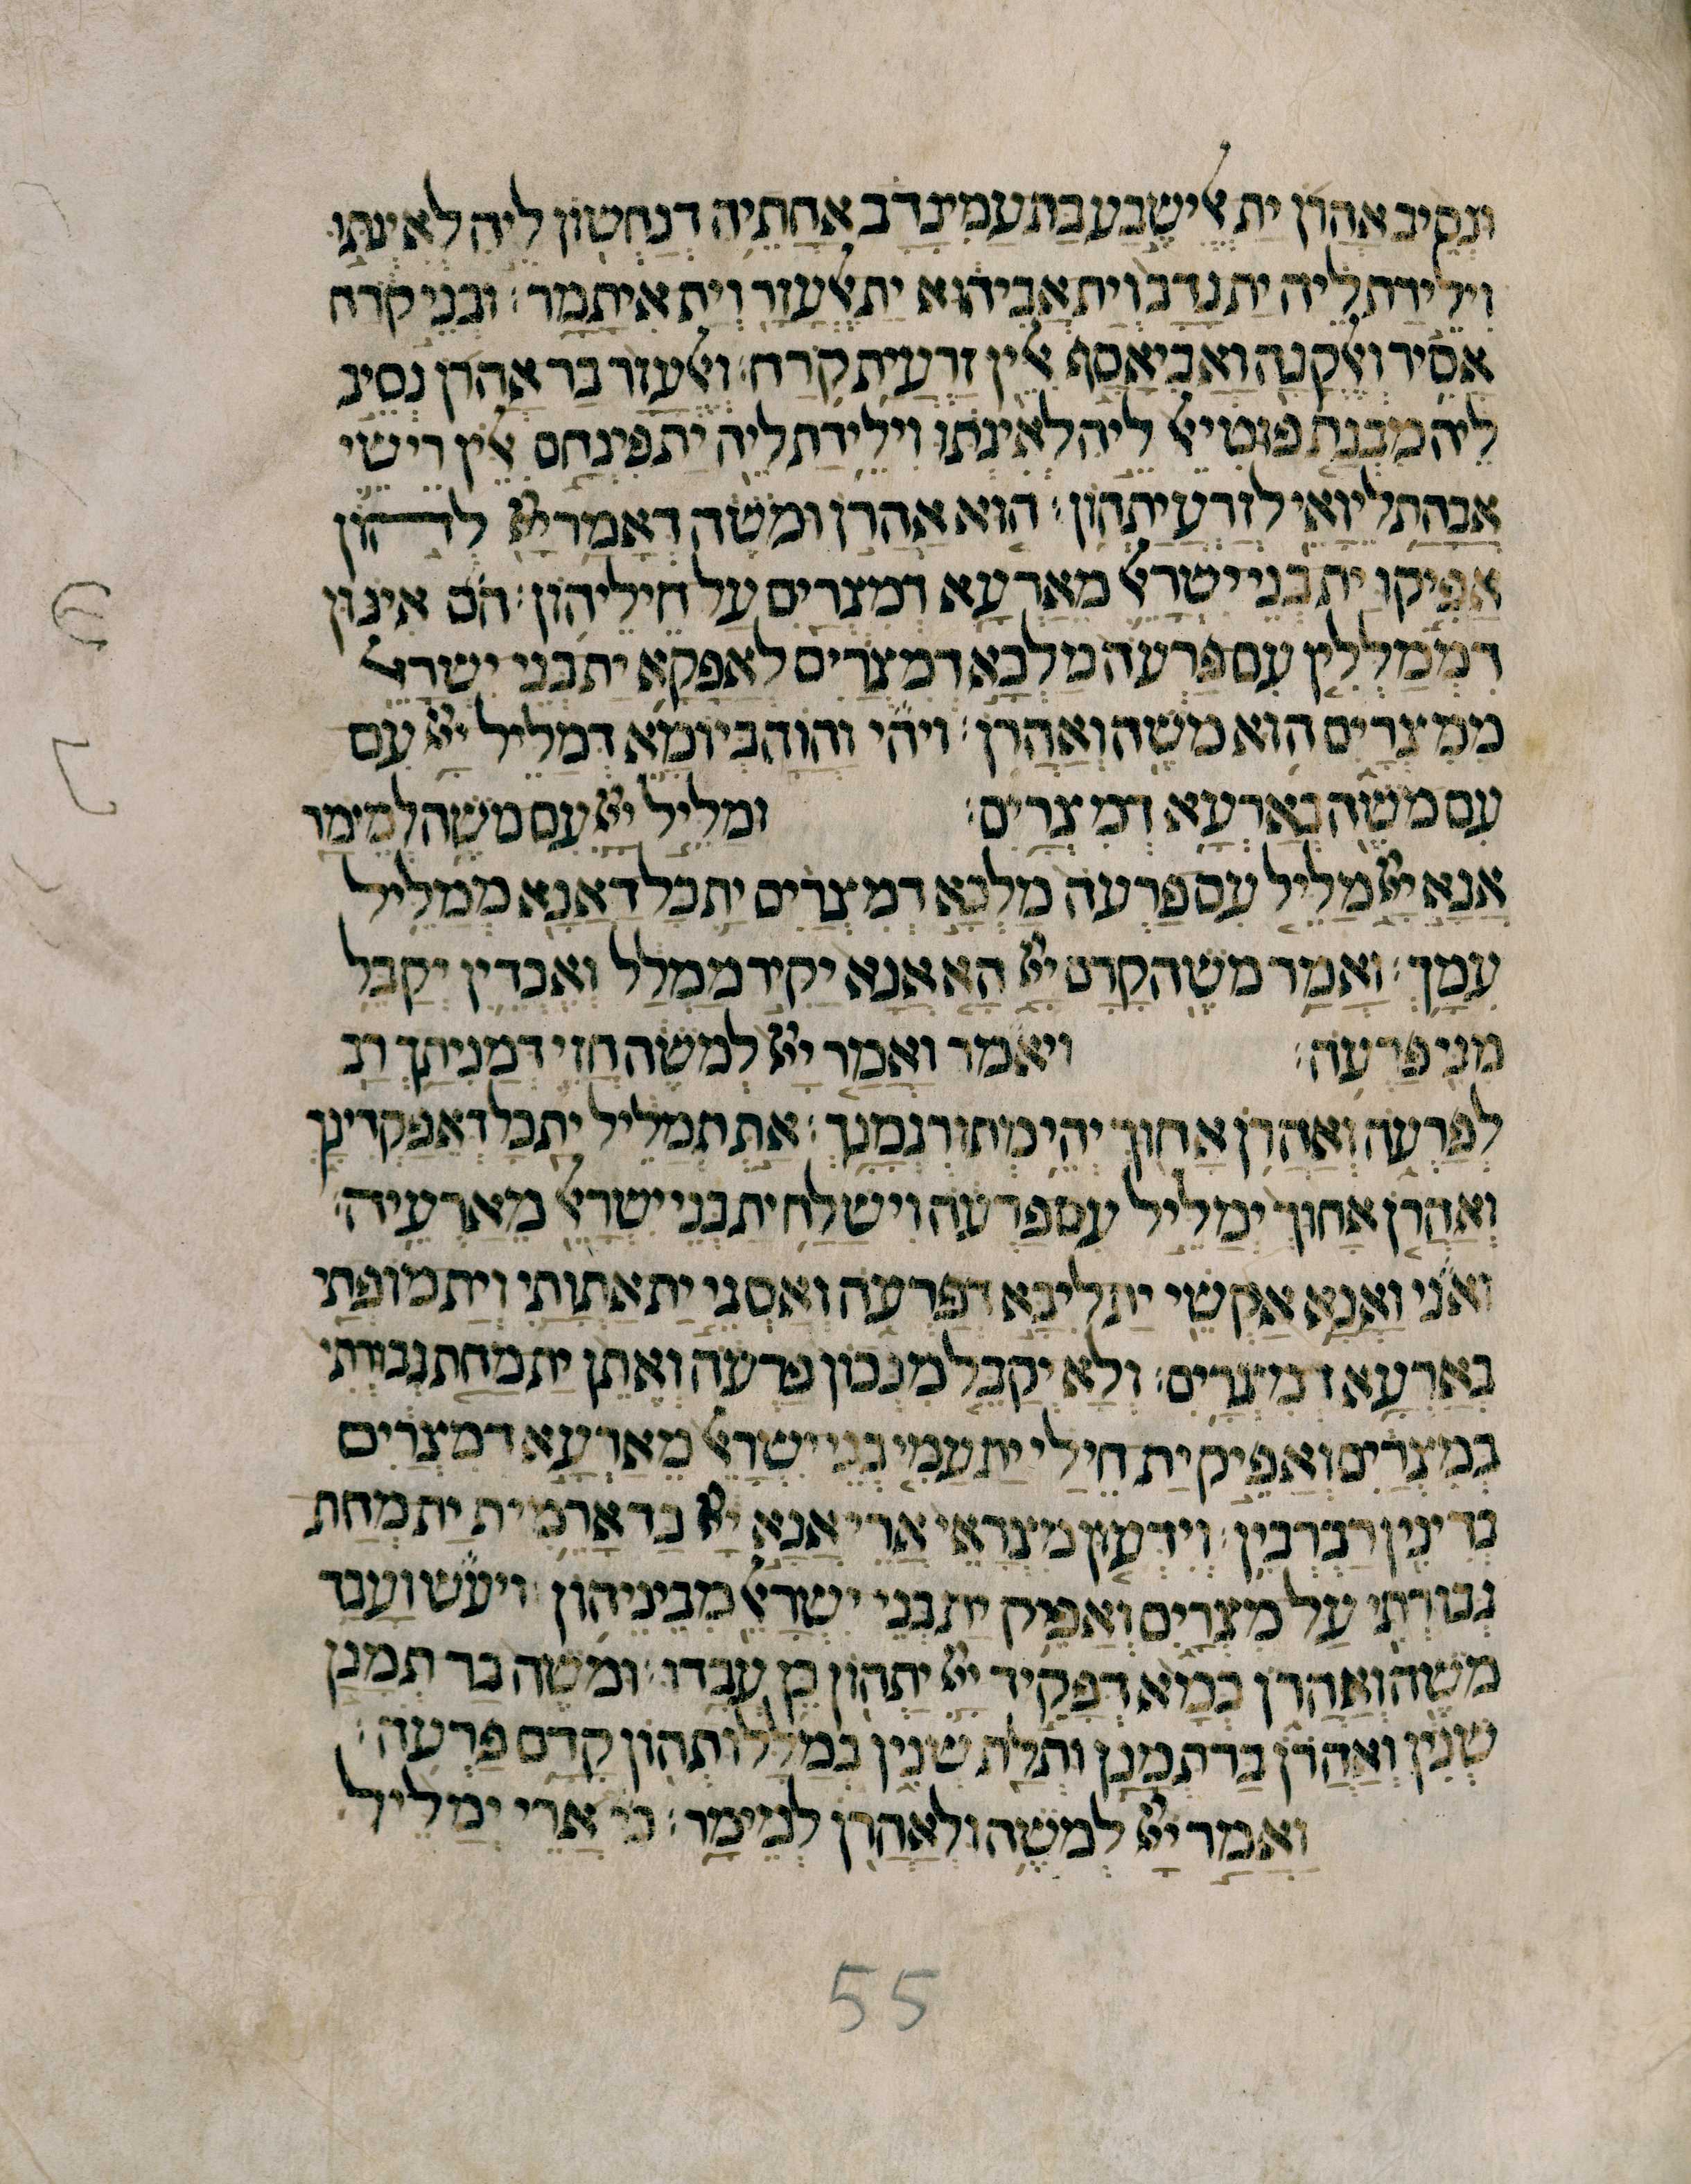 ונסיב אהרן ית אלישבע בת עמינדב אחתיה דנחשון ליה לאיתו
וילידת ליה ית נדב וית אביהוא ית אלעזר וית איתמר׃ ובני קרח
אסיר ואלקנה ואביאסף אלין זרעית קרח׃ ואלעזר בר אהרן נסיב
ליה מבנת פוטיאל ליה לאינתו וילידת ליה ית פינחס אלין רישי
אבהת ליואי לזרעיתהון׃ הוא אהרן ומשה דאמר יי להון
אפיקו ית בני ישראל מארעא דמצרים על חיליהון׃ הם אינון
דממללין עם פרעה מלכא דמצרים לאפקא ית בני ישראל
ממצרים הוא משה ואהרן׃ ויהי והוה ביומא דמליל יי עם
עם משה בארעא דמצרים׃ ומליל יי עם משה למימר
אנא יי מליל עם פרעה מלכא דמצרים ית כל דאנא ממליל
עמך׃ ואמר משה קדם יי הא אנא יקיר ממלל ואכדין יקבל
מני פרעה׃ ויאמר ואמר יי למשה חזי דמניתך רב
לפרעה ואהרן אחוך יהי מתורגמנך׃ את תמליל ית כל דאפקדינך
ואהרן אחוך ימליל עם פרעה וישלח ית בני ישראל מארעיה׃
ואני ואנא אקשי ית ליבא דפרעה ואסגי ית אתותי וית מופתי
בארעא דמצרים׃ ולא יקבל מנכון פרעה ואתן ית מחת גבורתי
במצרים ואפיק ית חילי ית עמי בני ישראל מארעא דמצרים
בדינין רברבין׃ וידעון מצראי ארי אנא יי כד ארמית ית מחת
גבורתי על מצרים ואפיק ית בני ישראל מביניהון׃ ויעש ועבד
משה ואהרן כמא דפקיד יי יתהון כן עבדו׃ ומשה בר תמנן
שנין ואהרן בר תמנן ותלת שנין במללותהון קדם פרעה׃
ואמר יי למשה ולאהרן למימר׃ כי ארי ימליל
55